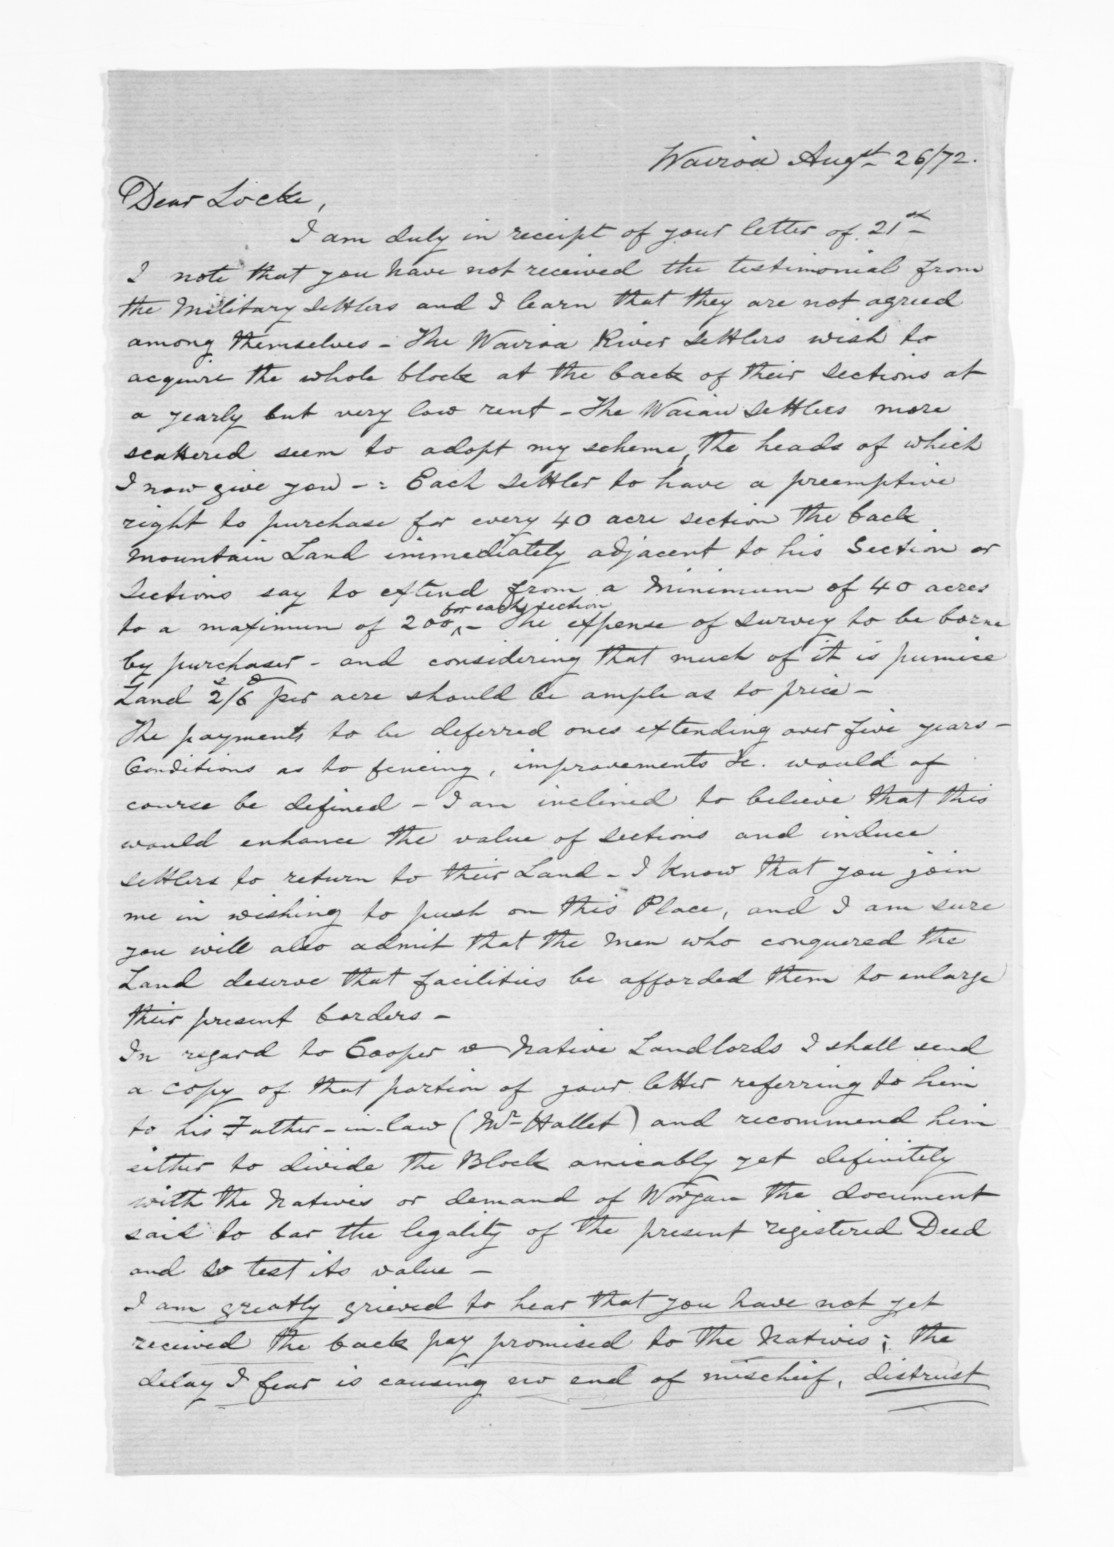 Wairoa Augst 26/72.
Dear Locke,
I am duly in receipt of your letter of 21st
I note that you have not received the testimonial from
the Military Settlers and I learn that they are not agreed
among themselves - The Wairoa River Settlers wish to
acquire the whole block at the back of their sections at
a yearly but very low rent - The Waiau Settlers more
scattered seem to adopt my scheme, the heads of which
I now give you - : Each Settler to have a preemptive
right to purchase for every 40 acre section the back
mountain Land immediately adjacent to his Section or
Sections say to extend from a Minimum of 40 acres
for each section
to a maximum of 200 ^ - The expense of survey to be borne
by purchaser - and considering that much of it is pumice
Land 2s/6d per acre should be ample as to price -
The payments to be deferred ones extending over five years -
Conditions as to fencing, improvements &c. would of
course be defined - I am inclined to believe that this
would enhance the value of Sections and induce
settlers to return to their Land - I know that you join
me in wishing to push on this Place, and I am sure
you will also admit that the Men who conquered the
Land deserve that facilities be afforded them to enlarge
their present borders -
In regard to Cooper v Native Landlords I shall send
a copy of that portion of your letter referring to him
to his Father-in-law (Mr Hallet) and recommend him
either to divide the Block amicably yet definitely
with the Natives or demand of Worgan the document
said to bar the legality of the present registered Deed
and so test its value -
I am greatly grieved to hear that you have not yet
received the back pay promised to the Natives; the
delay I fear is causing no end of mischief, distrust